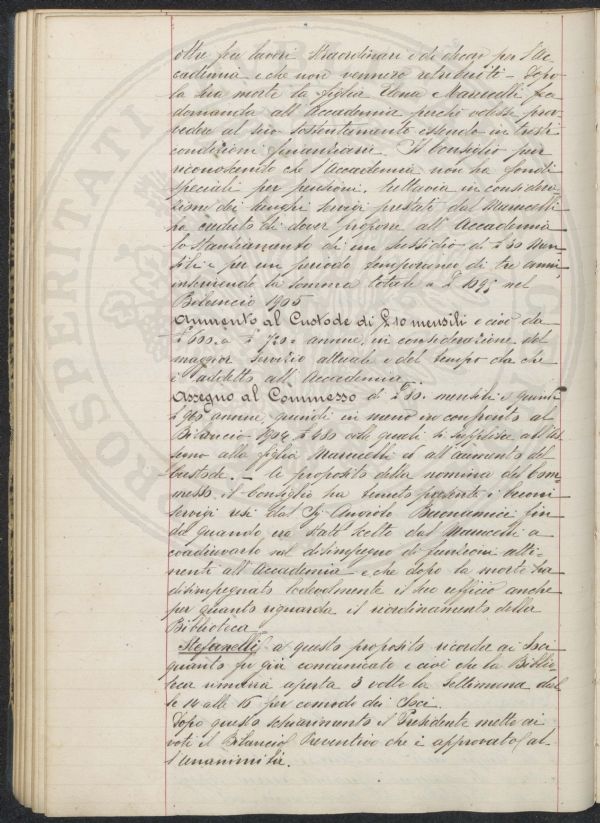 oltre fu lavori straordinari e di decor per l'Ac-
cademia e che non vennero retribuiti - Dopo
la sua morte la figlia Elena Marucelli fa
domanda all'Accademia perché volesse prov-
vedere al suo sostentamento essendo in tristi
condizioni finanziarie. Il Consiglio pur
riconoscendo che l'Accademia non ha fondi
speciali per pensioni, tuttavia in considera-
zione dei lunghi servigi prestati dal Marucelli
ha creduto di dover proporre all'Accademia
lo stanziamento di un sussidio di £ 30 men-
sili e per un periodo temporaneo di tre anni
inserendo la somma totale a £ 1095 nel
Bilancio 1905
Aumento al Custode di £ 10 mensili e cioè da
£ 600 a £ 720 annue, in considerazione del
maggior servizio attuale e del tempo da che
è addetto all'Accademia.
Assegno al Commesso di £ 80 mensili e quindi
£ 960 annue, quindi in meno in confronto al
Bilancio 1904 £ 480 colle quali si supplisce all'As-
segno alla figlia Marucelli ed all'aumento del
Custode. - A proposito della nomina del Com-
messo, il Consiglio ha tenuto presente i buoni
servigi resi dal Sig. Buonamici fin
da quando era stato scelto dal Marucelli a
coadiuvarlo nel disimpegno di funzioni atti-
nenti all'Accademia e che dopo la morte ha
disimpegnato lodevolmente il suo ufficio anche
per quanto riguarda il riordinamento della
Biblioteca
Stefanelli a questo proposito ricorda ai Soci
quanto fu già comunicato e cioè che la Biblio-
teca rimarrà aperta 3 volte la settimana dal
le 14 alle 16 per comodo dei Soci.
Dopo questo schiarimento il Presidente mette ai
voti il Bilancio Preventivo che è approvato al-
l'Unanimità.
PROSPERITATI